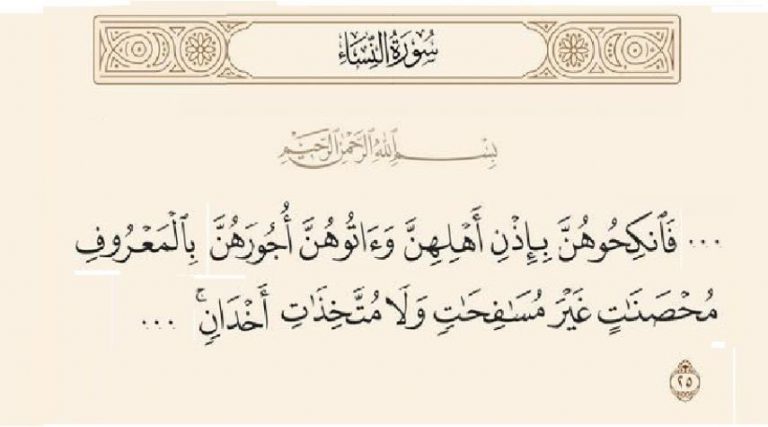 سُورَةُ النِّسَاءِ
بِسْمِ ٱللَّهِ ٱلرَّحْمَٰنِ ٱلرَّحِيمِ
... فَٱنكِحُوهُنَّ بِإِذْنِ أَهْلِهِنَّ وَءَاتُوهُنَّ أُجُورَهُنَّ بِٱلْمَعْرُوفِ
مُحْصَنَٰتٍ غَيْرَ مُسَٰفِحَٰتٍ وَلَا مُتَّخِذَٰتِ أَخْدَانٍۚ ...
٢٥